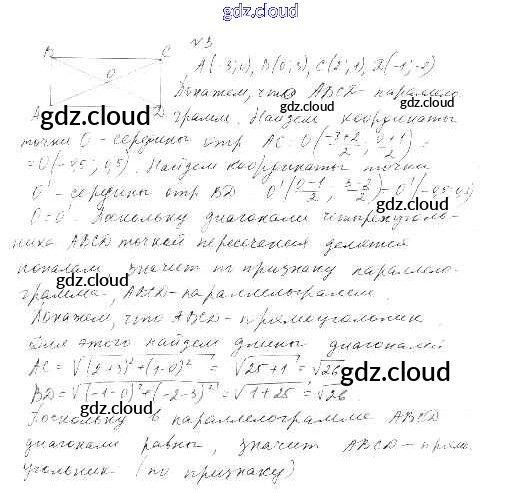 gdz.cloud
№3
B C
A(-3;0), B(0;3), C(2;1), D(-1;-2)
O
Докажем, что ABCD - паралело
A D
gdz.cloud
грамм. Найдем координаты
точки O - середины отр AC: O(-3+2/2; 0+1/2) =
gdz.cloud
= O(-0,5; 0,5). Найдем координаты точки
O' - середины отр BD O'(0-1/2; 3-2/2) = O'(-0,5; 0,5)
gdz.cloud
O = O'. Поскольку диагонали четырехуголь-
gdz.cloud
ника ABCD точкой пересечения делятся
пополам, значит по признаку параллело-
gdz.cloud
грамма, ABCD - параллелограмм.
Докажем, что ABCD - прямоугольник.
Для этого найдем длины диагоналей
AC = √(2+3)²+(1-0)² = √25+1 = √26
gdz.cloud
BD = √(-1-0)²+(-2-3)² = √1+25 = √26.
gdz.cloud
Поскольку в параллелограмме ABCD
диагонали равны, значит ABCD - прям
угольник (по признаку)
gdz.cloud